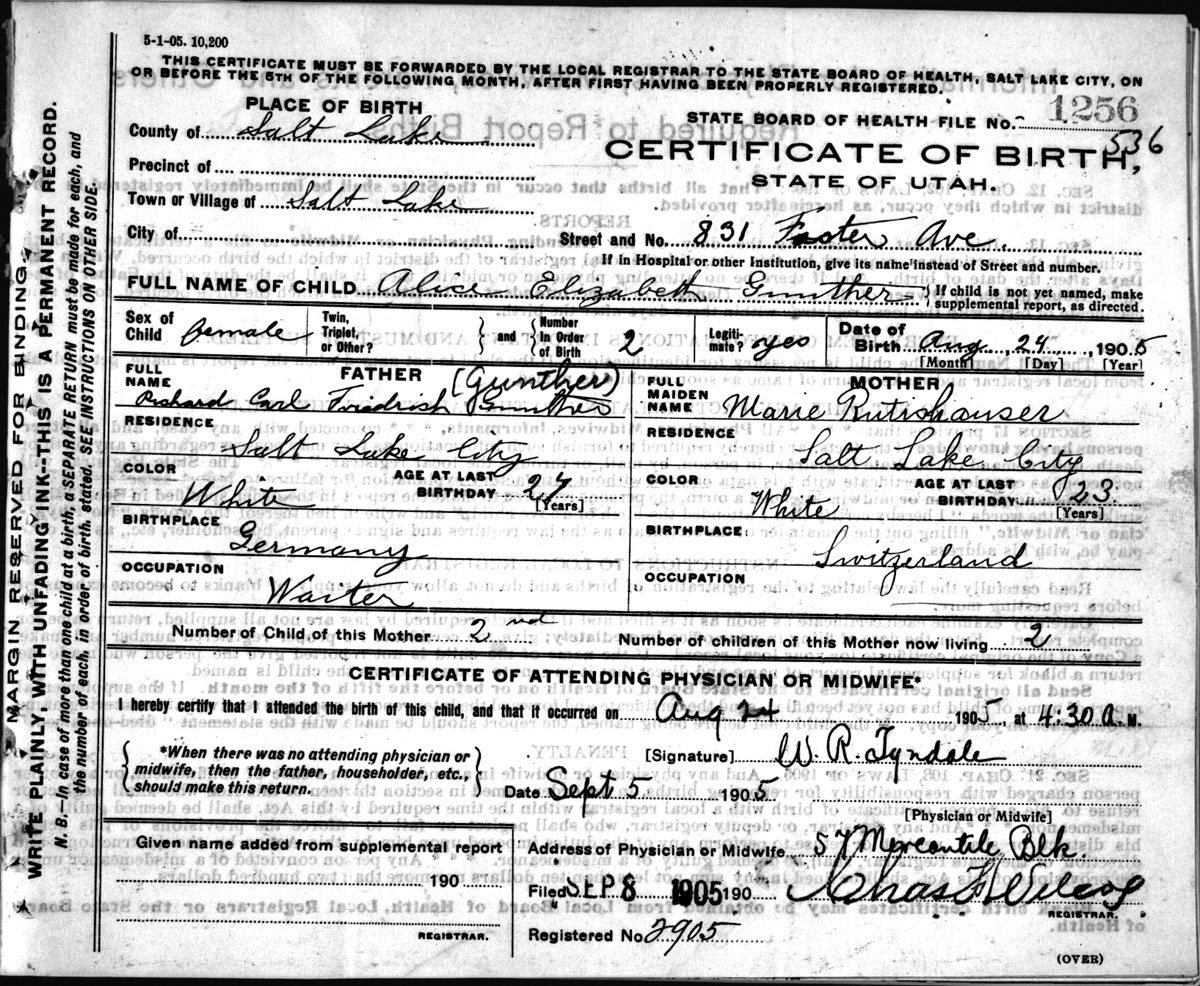 5-1-05. 10,200
THIS CERTIFICATE MUST BE FORWARDED BY THE LOCAL REGISTRAR TO THE STATE BOARD OF HEALTH, SALT LAKE CITY, ON
OR BEFORE THE 5TH OF THE FOLLOWING MONTH, AFTER FIRST HAVING BEEN PROPERLY REGISTERED.
PLACE OF BIRTH
STATE BOARD OF HEALTH FILE No. 1256
536
County of Salt Lake
CERTIFICATE OF BIRTH,
STATE OF UTAH.
Precinct of
Town or Village of Salt Lake
City of
Street and No. 831 Foster Ave.
If in Hospital or other Institution, give its name instead of Street and number.
FULL NAME OF CHILD Alice Elizabeth Gunther
If child is not yet named, make
supplemental report, as directed.
Sex of
Child female
Twin,
Triplet,
or Other?
and
Number
in Order
of Birth 2
Legiti-
mate? yes
Date of
Birth Aug, 24, 1905
[Month] [Day] [Year]
FATHER (Gunther)
FULL
NAME Richard Carl Friedrich Gunther
RESIDENCE
Salt Lake City
COLOR
White
AGE AT LAST
BIRTHDAY 27
[Years]
BIRTHPLACE
Germany
OCCUPATION
Waiter
MOTHER
FULL
MAIDEN
NAME Marie Rutishauser
RESIDENCE
Salt Lake City
COLOR
White
AGE AT LAST
BIRTHDAY 23
[Years]
BIRTHPLACE
Switzerland
OCCUPATION
Number of Child of this Mother 2nd
Number of children of this Mother now living 2
CERTIFICATE OF ATTENDING PHYSICIAN OR MIDWIFE*
I hereby certify that I attended the birth of this child, and that it occurred on Aug 24 1905, at 4:30 a. M.
*When there was no attending physician or
midwife, then the father, householder, etc.,
should make this return.
[Signature] W. R. Tyndale
Date Sept. 5 1905
[Physician or Midwife]
Given name added from supplemental report
190
REGISTRAR.
Address of Physician or Midwife 57 Mercantile Blk.
Filed SEP 8 1905 190
REGISTRAR.
Registered No. 2905
(OVER)
MARGIN RESERVED FOR BINDING.
WRITE PLAINLY WITH UNFADING INK--THIS IS A PERMANENT RECORD.
N. B.--In case of more than one child at a birth, a SEPARATE RETURN must be made for each, and
the number of each, in order of birth, stated. SEE INSTRUCTIONS ON OTHER SIDE.